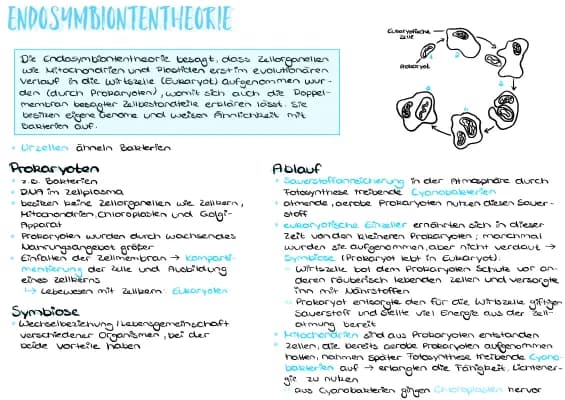 ENDOSYMBIONTENTHEORIE
Die Endosymbiontentheorie besagt, dass Zellorganellen
wie Mitochondrien und Plastiden erst im evolutionären
Verlauf in die Wirtszelle (Eukaryot) aufgenommen wur-
den (durch Prokaryoten), womit sich auch die Doppel-
membran besagter Zellbestandteile erklären lässt. Sie
besitzen eigene Genome und weisen Ähnlichkeit mit
Bakterien auf.
Eukaryotische
Zelle
Prokaryot
1
2
3
4
5
6
• Urzellen ähneln Bakterien
Prokaryoten
• z.B. Bakterien
• DNA im Zellplasma
• besitzen keine Zellorganellen wie Zellkern,
Mitochondrien, Chloroplasten und Golgi-
Apparat
• Prokaryoten wurden durch wachsendes
Nahrungsangebot größer
• Einfalten der Zellmembran → Komparti-
mentierung der Zelle und Ausbildung
eines Zellkerns
↳ Lebewesen mit Zellkern: Eukaryoten
Symbiose
• Wechselbeziehung / Lebensgemeinschaft
verschiedener Organismen, bei der
beide Vorteile haben
Ablauf
• Sauerstoffanreicherung in der Atmosphäre durch
Fotosynthese treibende Cyanobakterien
• atmende, aerobe Prokaryoten nutzen diesen Sauer-
stoff
• eukaryotische Einzeller ernährten sich in dieser
Zeit von den kleineren Prokaryoten; manchmal
wurden sie aufgenommen, aber nicht verdaut →
Symbiose (Prokaryot lebt in Eukaryot):
◦ Wirtszelle bot dem Prokaryoten Schutz vor an-
deren räuberisch lebenden Zellen und versorgte
ihn mit Nährstoffen
◦ Prokaryot entsorgte den für die Wirtszelle giftigen
Sauerstoff und stellte viel Energie aus der Zell-
atmung bereit
• Mitochondrien sind aus Prokaryoten entstanden
• Zellen, die bereits aerobe Prokaryoten aufgenommen
hatten, nahmen später Fotosynthese treibende Cyano-
bakterien auf → erlangten die Fähigkeit, Lichtener-
gie zu nutzen
◦ aus Cyanobakterien gingen Chloroplasten hervor